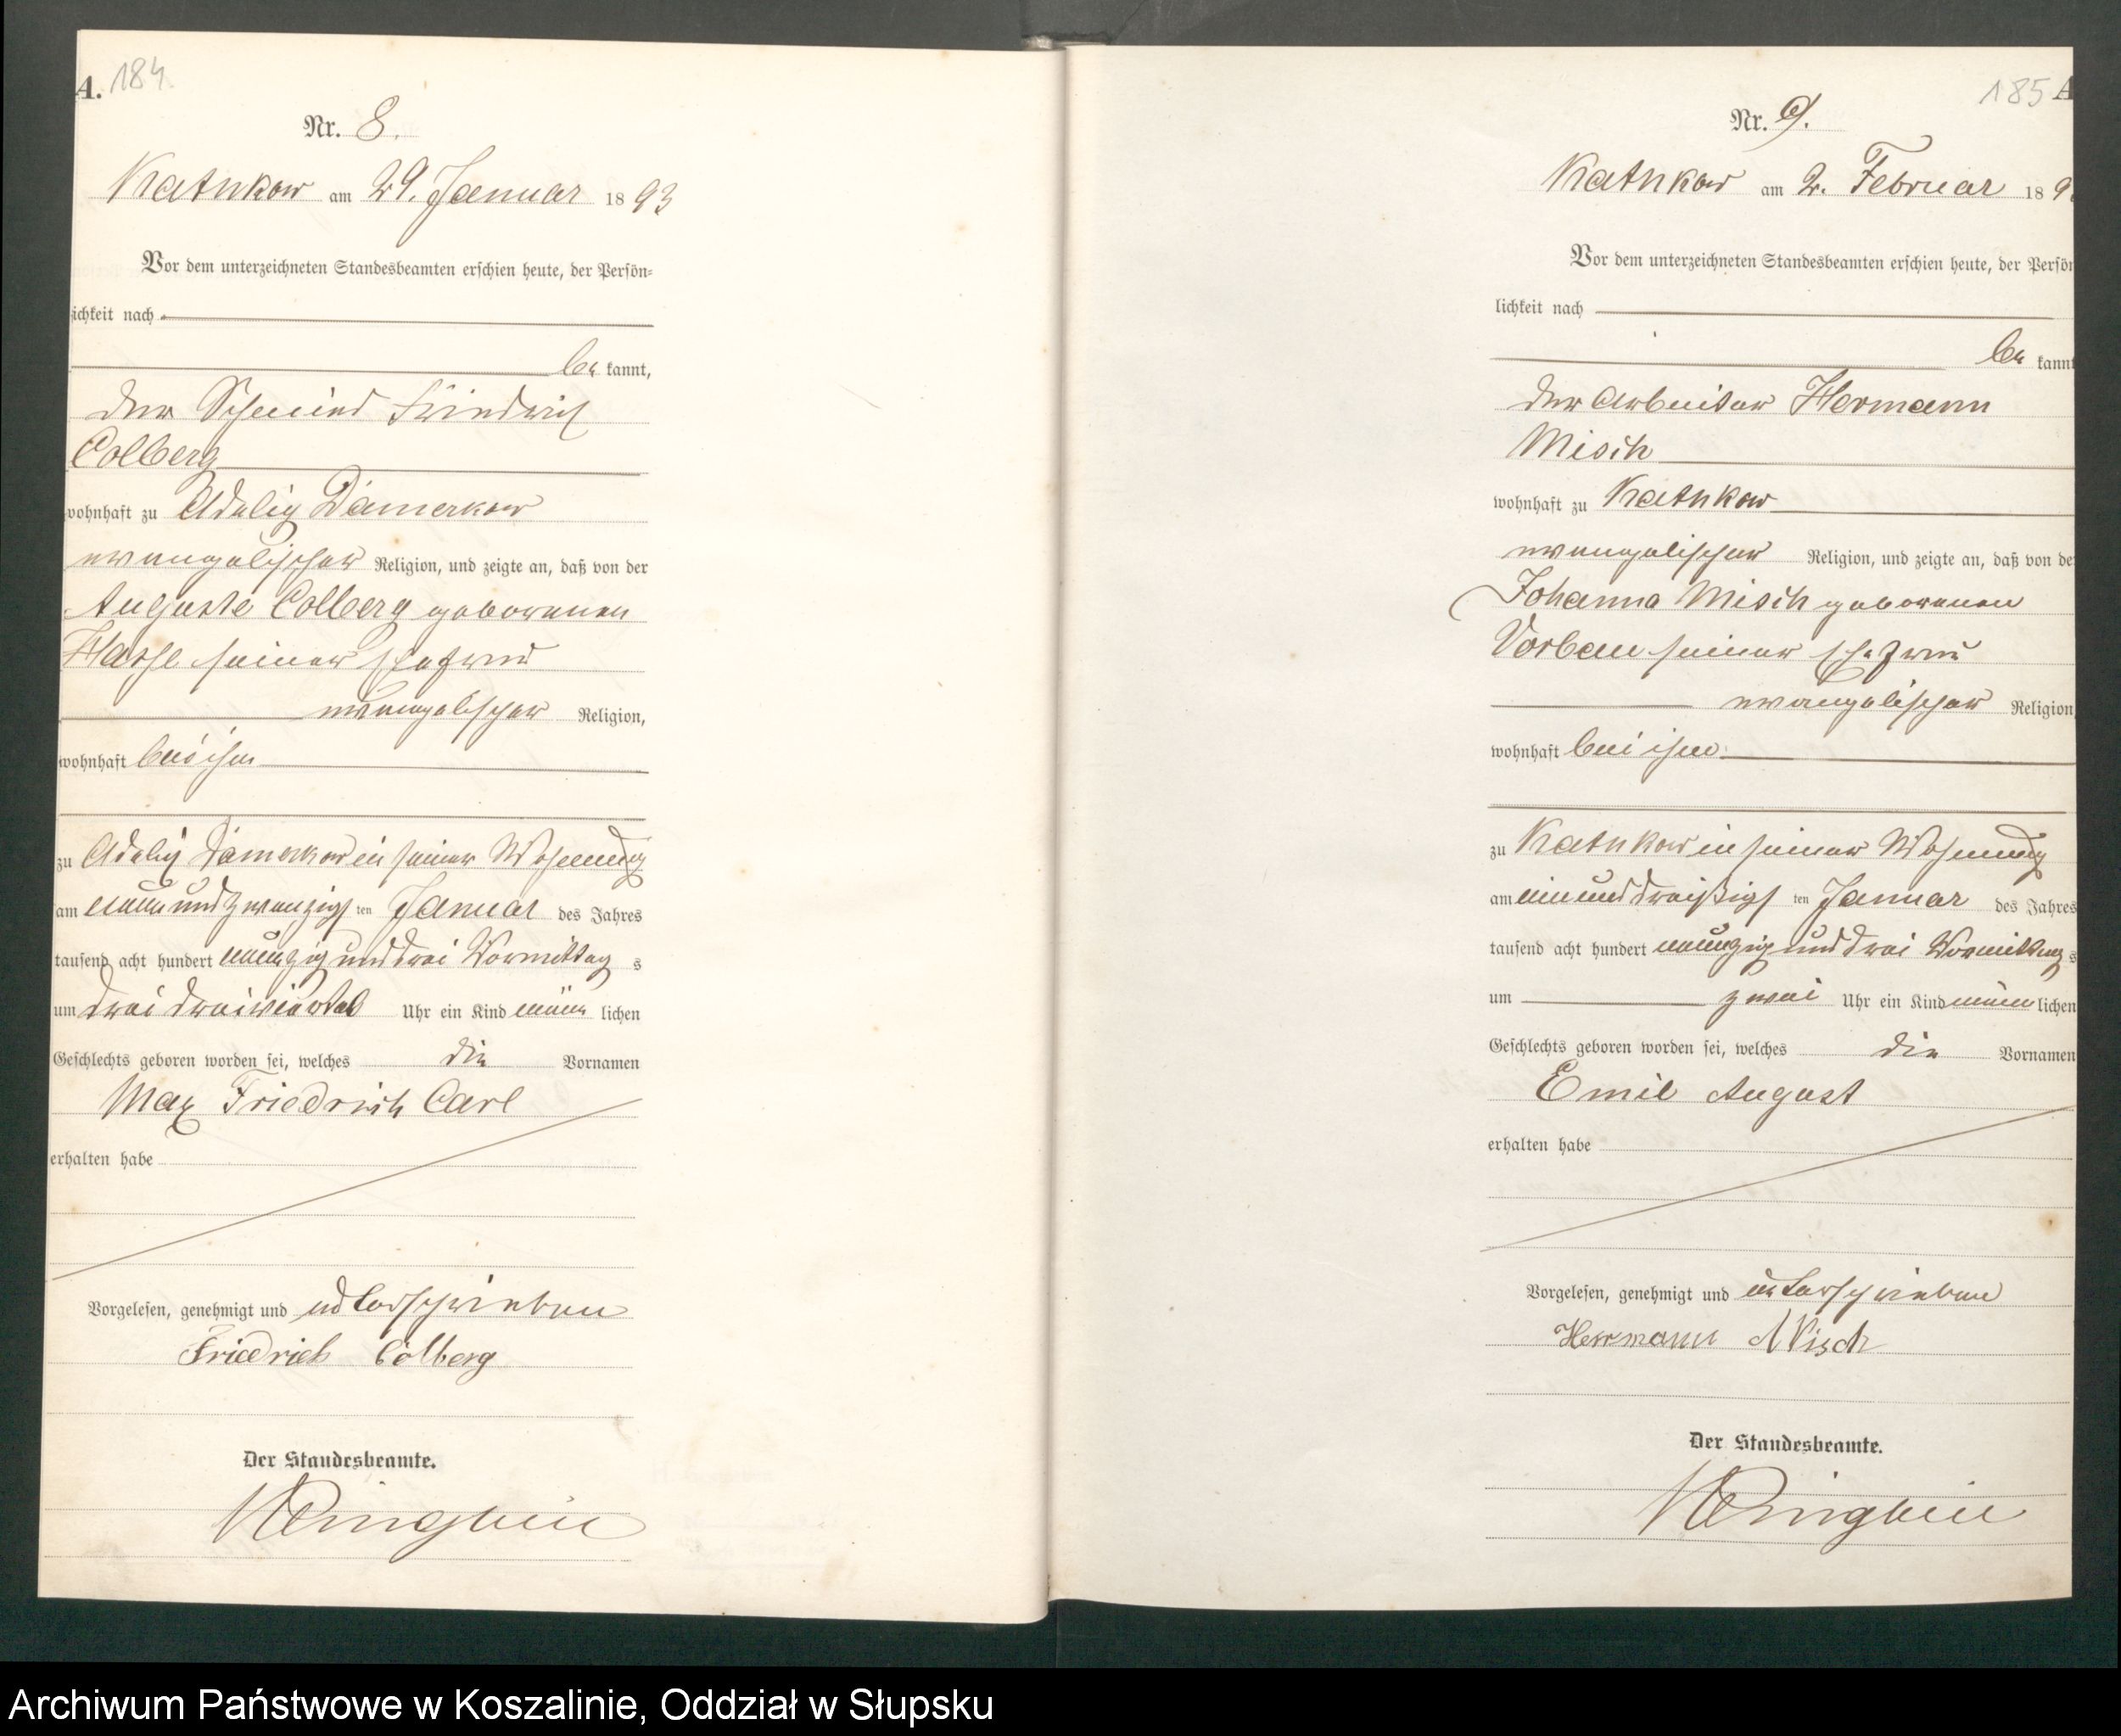 A. 184
Nr. 8.
Katnkow am 29. Januar 1893
Vor dem unterzeichneten Standesbeamten erschien heute, der Persön-
lichkeit nach
be kannt,
der Schmied Friedrich
Colberg
wohnhaft zu Adelig Dämerkow
evangelischer Religion, und zeigte an, daß von der
Auguste Colberg geborenen
Hasse seiner Ehefrau
evangelischer Religion,
wohnhaft bei ihm
zu Adelig Dämerkow in seiner Wohnung
am neunundzwanzigsten Januar des Jahres
tausend acht hundert neunzig und drei Vormittags
um drei dreiviertel Uhr ein Kind männlichen
Geschlechts geboren worden sei, welches die Vornamen
Max Friedrich Carl
erhalten habe
Vorgelesen, genehmigt und unterschrieben
Friedrich Colberg
Der Standesbeamte.
185 A
Nr. 9.
Katnkow am 2. Februar 189
Vor dem unterzeichneten Standesbeamten erschien heute, der Persön
lichkeit nach
be kannt
der Arbeiter Hermann
Misch
wohnhaft zu Katnkow
evangelischer Religion, und zeigte an, daß von de
Johanna Misch geborenen
Vorbau seiner Ehefrau
evangelischer Religion,
wohnhaft bei ihm
zu Katnkow in seiner Wohnung
am einunddreißigsten Januar des Jahres
tausend acht hundert neunzig und drei Vormittags
um zwei Uhr ein Kind männlichen
Geschlechts geboren worden sei, welches die Vornamen
Emil August
erhalten habe
Vorgelesen, genehmigt und unterschrieben
Herrmann Misch
Der Standesbeamte.
Archiwum Państwowe w Koszalinie, Oddział w Słupsku